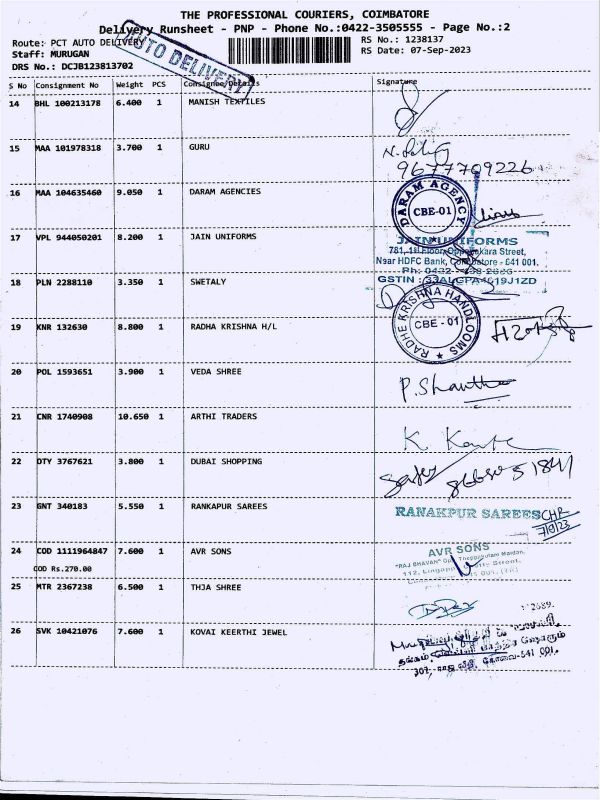 THE PROFESSIONAL COURIERS, COIMBATORE
Delivery Runsheet - PNP - Phone No.:0422-3505555 - Page No.:2
Route: PCT AUTO DELIVERY
RS No.: 1238137
Staff: MURUGAN
RS Date: 07-Sep-2023
DRS No.: DCJB123813702
AUTO DELIVERY
S No Consignment No Weight PCS Consignee/Details Signature
14 BHL 100213178 6.400 1 MANISH TEXTILES
15 MAA 101978318 3.700 1 GURU
9677709226
16 MAA 104635460 9.050 1 DARAM AGENCIES
DARAM AGENCY
CBE-01
17 VPL 944050201 8.200 1 JAIN UNIFORMS
JAIN UNIFORMS
781, 1st Floor, Street,
Near HDFC Bank, Coimbatore - 641 001.
Ph: 0422
GSTIN :
18 PLN 2288110 3.350 1 SWETALY
19 KNR 132630 8.800 1 RADHA KRISHNA H/L
RADHE KRISHNA HANDLOOMS
CBE - 01
20 POL 1593651 3.900 1 VEDA SHREE
P. Shantha
21 CNR 1740908 10.650 1 ARTHI TRADERS
22 OTY 3767621 3.800 1 DUBAI SHOPPING
23 GNT 340183 5.550 1 RANKAPUR SAREES
RANAKPUR SAREES
7/9/23
24 COD 1111964847 7.600 1 AVR SONS
COD Rs.270.00
AVR SONS
"RAJ BHAVAN"
25 MTR 2367238 6.500 1 THJA SHREE
26 SVK 10421076 7.600 1 KOVAI KEERTHI JEWEL